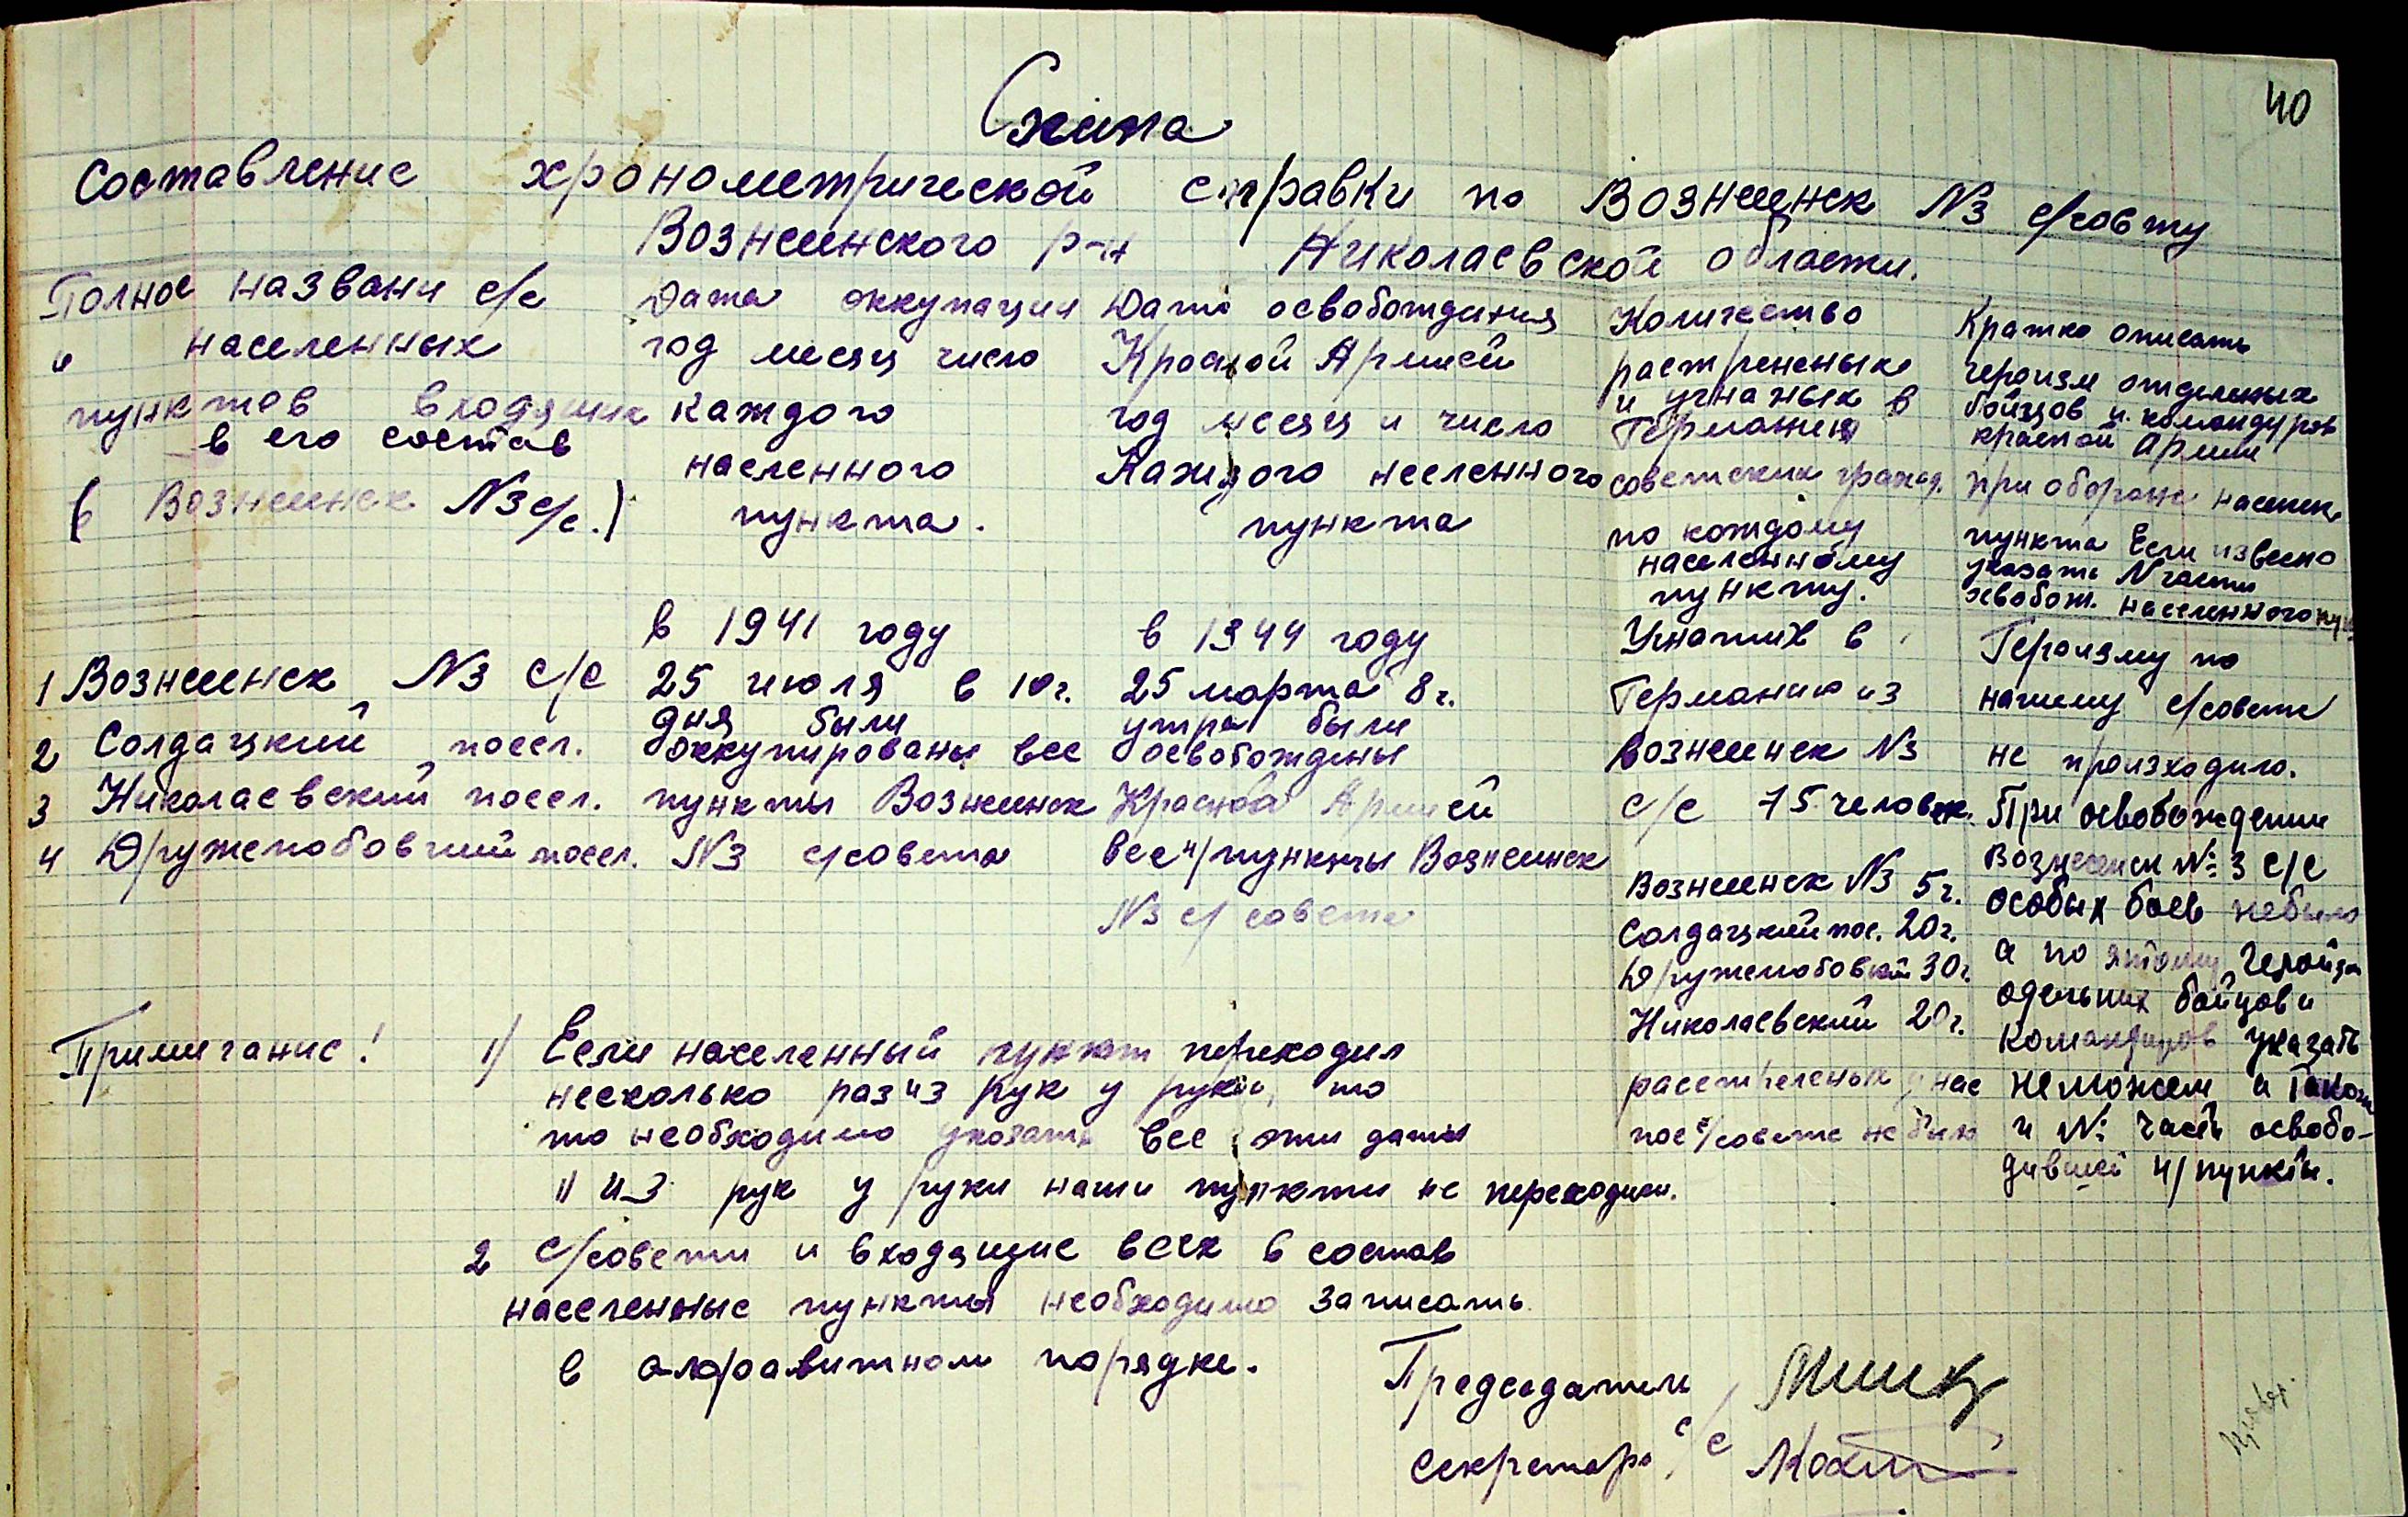 40
Схима
Составление хронометрической справки по Вознесинск №3 с/совту
Вознесинского р-н Николаевской области.
Полное названи с/с
и населенных
пунктов входящих
в его состав
( Вознесинск №3 с/с. )
Дата оккупации
год месяц число
каждого
населенного
пункта.
Дата освобождения
Красной Армией
год месяц и число
Каждого неселенного
пункта
Количество
растреленых
и угнаных в
Германия
советских гражд.
по каждому
населенному
пункту.
Кратко описать
героизм отделеных
бойцов и командуров
красной Армии
при обороне населен.
пункта Если извесно
указать № части
освобож. населенного пун
1 Вознесинск №3 с/с
2 Солдацкий посел.
3 Николаевский посел.
4 Дружелюбовский посел.
в 1941 году
25 июля в 10 г.
дня были
оккупированы все
пункты Вознесинск
№3 с/совета
в 1944 году
25 марта 8 г.
утра были
освобождены
Красной Армией
все н/пункты Вознесинск
№3 с/совета
Угнатих в
Германию из
Вознесинск №3
с/с 75 человек.
Вознесинск №3 5 г.
Солдацкий пос. 20 г.
Дружелюбовкий 30 г.
Николаевский 20 г.
расстреленых у нас
по с/совете не было
Героизму по
нашему с/совети
не произходило.
При освобождении
Вознесинск № 3 с/с
особых боев небыло
а по этому
одельних бойцов и
командиров указать
не можем а также
и № части освобо-
дившей н/пункты.
Примичание!
1) Если населенный пункт переходил
несколько раз из рук у руки, то
то необходимо указать все эти даты
1) Из рук у руки наши пункти не переходили.
2 С/совети и входящие всех в состав
населенные пункты необходимо записать
в алфавитном порядке.
Председатель
секретарь с/с